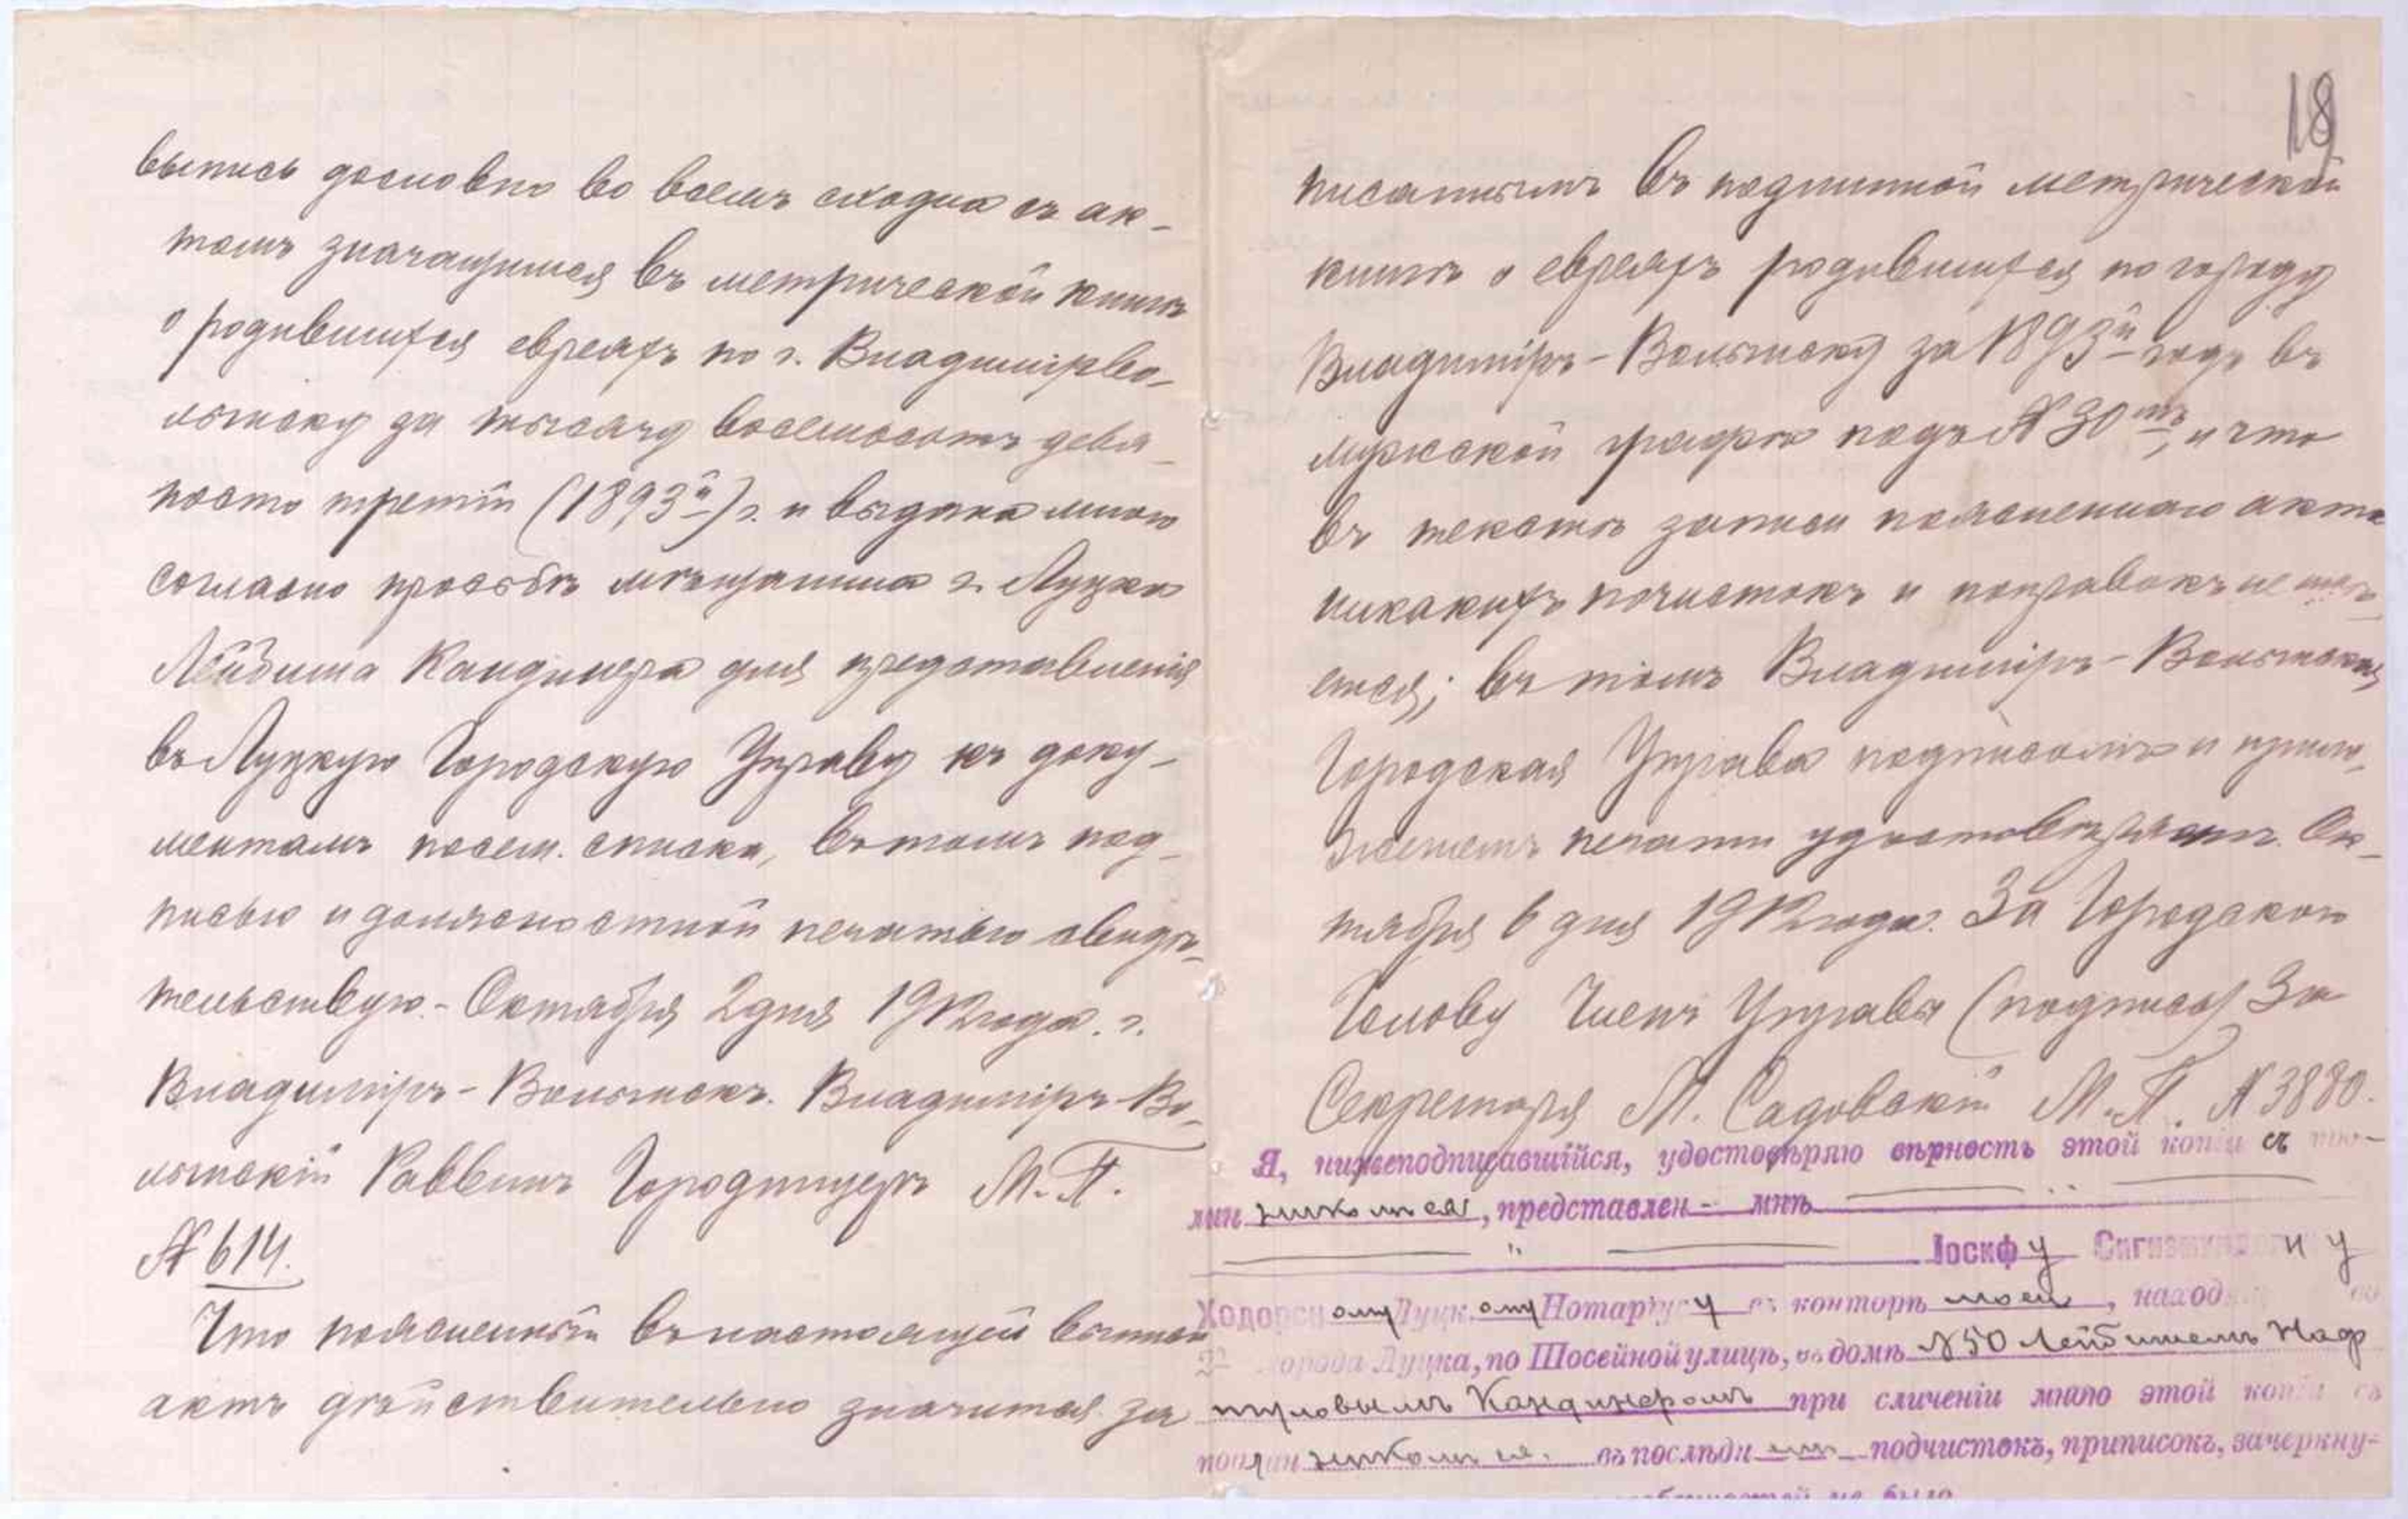 выпись дословно во всемъ сходна съ ак-
томъ значащимся въ метрической книгѣ
о родившихся евреяхъ по г. Владимірво-
лынску за тысячу восемьсотъ девя-
носто третій (1893й) г. и выдана мною
согласно просьбѣ мѣщанина г. Луцка
Лейбиша Кандинера для представленія
въ Луцкую Городскую Управу къ доку-
ментамъ посем. списка, въ томъ под-
писью и должностной печатью свидѣ-
тельствую.- Октября 2 дня 1912 года. г.
Владиміръ-Волынскъ. Владиміръ-Во-
лынскій Раввинъ Городищеръ М.П.
№ 614.
Что поясненный въ настоящей выписи
актъ дѣйствительно значится за
18
писаннымъ въ подлинной метрической
книгѣ о евреяхъ родившихся по городу
Владиміръ-Волынску за 1893й годъ въ
мужской графѣ подъ № 30мъ, и что
въ текстѣ записи поясненнаго акта
никакихъ почистокъ и поправокъ не имѣ-
ется; въ томъ Владиміръ-Волынская
Городская Управа подписомъ и прило-
женіемъ печати удостовѣряетъ. Ок-
тября 6 дня 1912 года. За Городского
Голову Членъ Управы (подпись) За
Секретаря М. Садовскій М.П. № 3880.
Я, нижеподписавшійся, удостовѣряю вѣрность этой копіи съ
, представлен- мнѣ
Іосифу Сигизмундовичу
Ходорскому Луцкому Нотаріусу въ конторѣ моей, наход
города Луцка, по Шосейной улицѣ, въ домѣ №50 Лейбишемъ Наф
туловымъ Кандинеромъ при сличеніи мною этой копіи съ
въ послѣдн подчистокъ, приписокъ, зачеркну-
не было